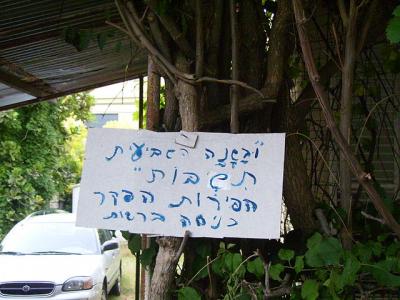 "ובשנה השביעית
תשיבות"
הפירות הפקר
כניסה ברשות